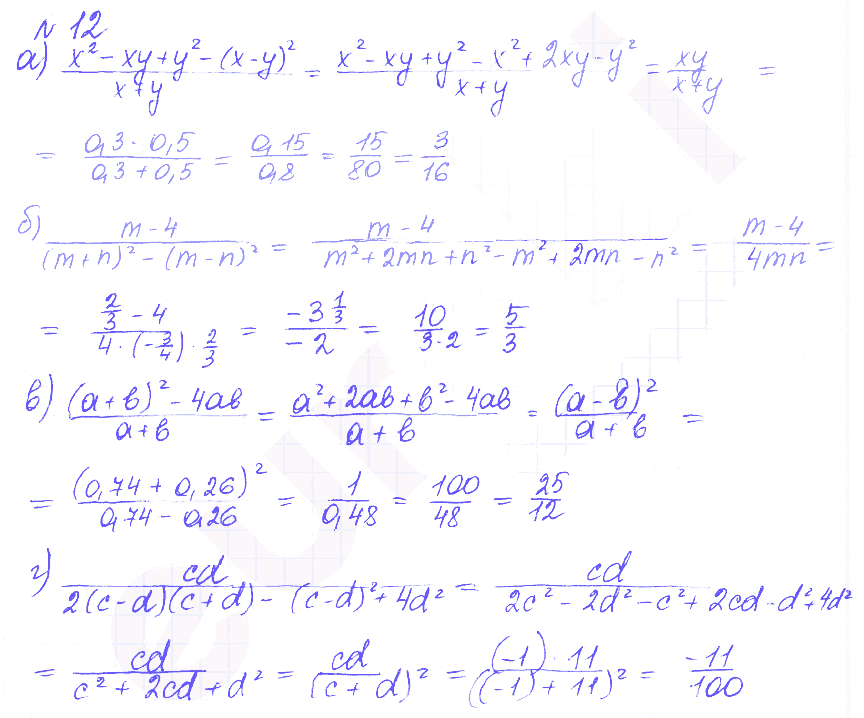 № 12
а) (x² - xy + y² - (x-y)²)/(x+y) = (x² - xy + y² - x² + 2xy - y²)/(x+y) = xy/(x+y) =
= (0,3 · 0,5)/(0,3 + 0,5) = 0,15/0,8 = 15/80 = 3/16
б) (m - 4)/((m+n)² - (m-n)²) = (m - 4)/(m² + 2mn + n² - m² + 2mn - n²) = (m - 4)/(4mn) =
= (2/3 - 4)/(4 · (-3/4) · 2/3) = (-3 1/3)/(-2) = 10/(3·2) = 5/3
в) ((a+b)² - 4ab)/(a+b) = (a² + 2ab + b² - 4ab)/(a+b) = (a-b)²/(a+b) =
= (0,74 + 0,26)²/(0,74 - 0,26) = 1/0,48 = 100/48 = 25/12
г) cd/(2(c-d)(c+d) - (c-d)² + 4d²) = cd/(2c² - 2d² - c² + 2cd - d² + 4d²
= cd/(c² + 2cd + d²) = cd/(c+d)² = ((-1) · 11)/((-1) + 11)² = -11/100